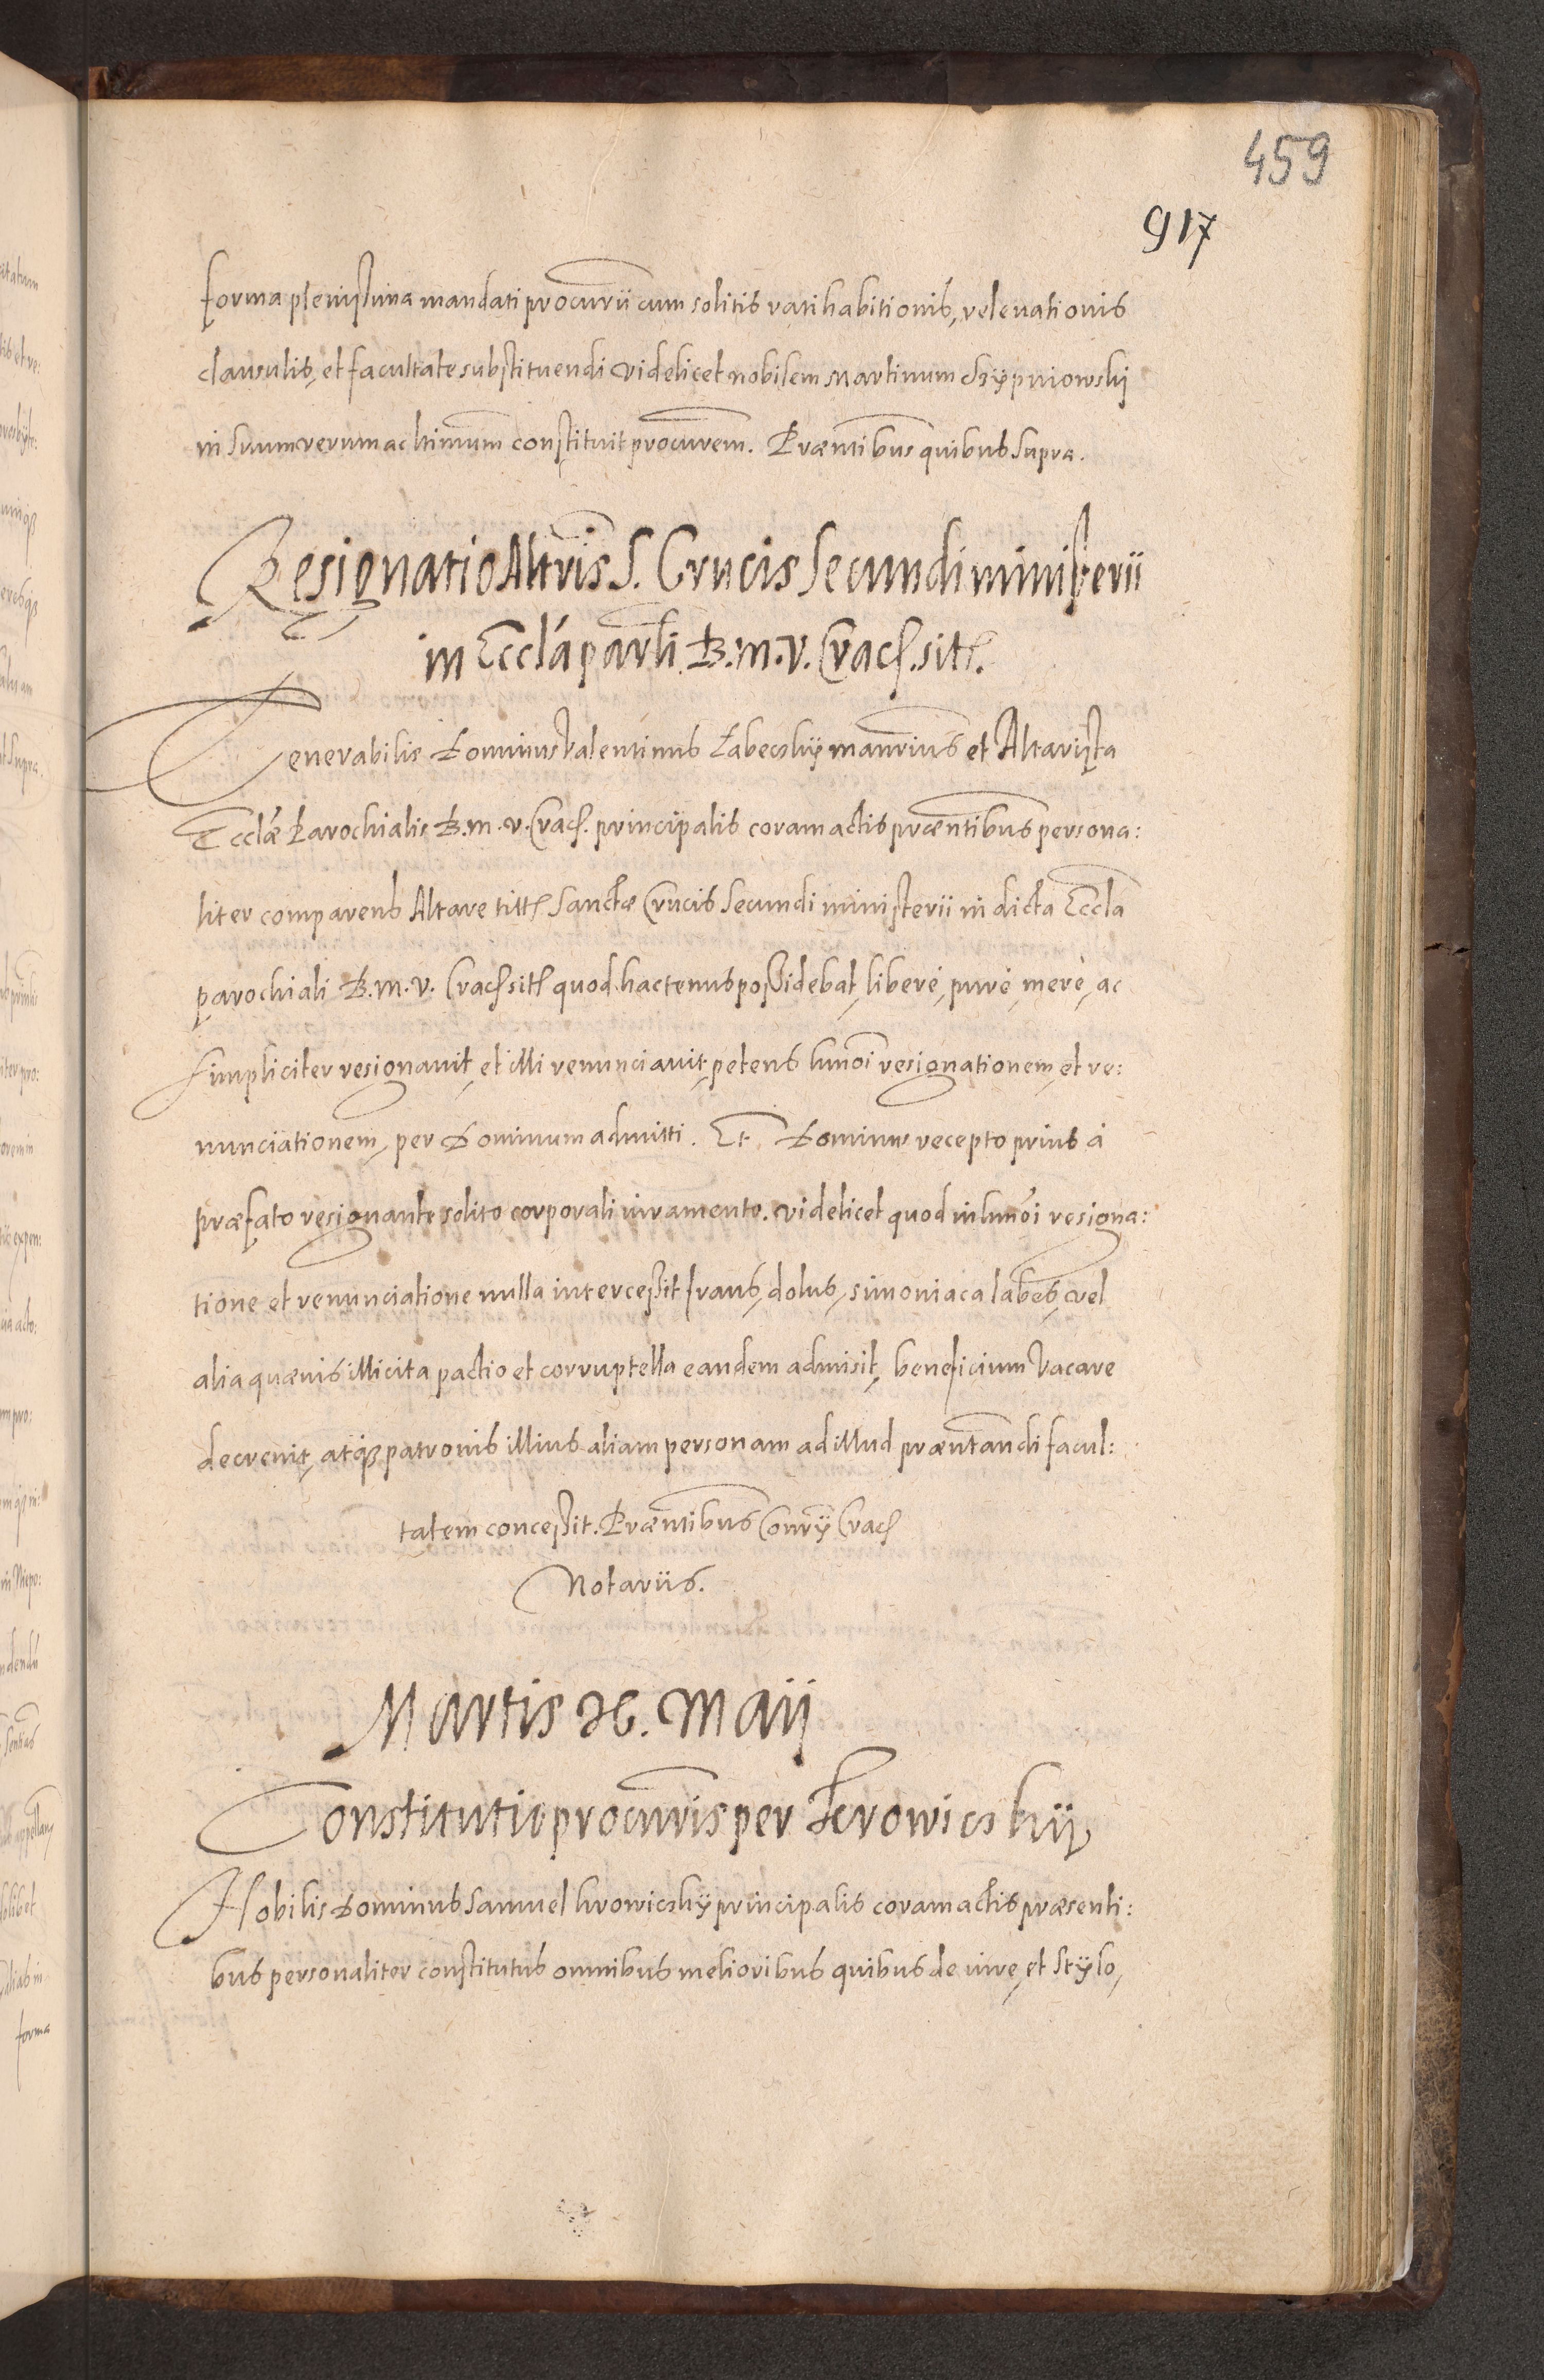 459
917
forma plenissima mandati procurii cum solitis ratihabitionis, relevationis
clausulis, et facultate substituendi videlicet nobilem Martinum
in suum verum ac ltimum constituit procurem. Præntibus quibus supra.
Resignatio Altris S. Crucis secundi ministerii
in Eccla parli. B. M. V. Crac. sitt.
Venerabilis Dominus Valentinus Łabeczky manrius et Altarista
Ecclæ Parochialis B. M. V. Crac. principalis coram actis præntibus persona:
liter comparens Altare titt Sanctæ Crucis secundi ministerii in dicta Eccla
parochiali B. M. V. Crac sitt quod hactenus possidebat, liberè, purè, merè, ac
simpliciter resignavit, et illi renunciavit, petens hmoi resignationem, et re:
nunciationem, per Dominum admitti. Et Dominus recepto prius à
præfato resignante solito corporali iuramento. videlicet quod in hmoi resigna:
tione et renunciatione nulla intercessit fraus, dolus, simoniaca labes, vel
alia quævis illicita pactio et corruptella eandem admisit, beneficium vacare
decrevit, atq patronis illius aliam personam ad illud præntandi facul:
tatem concessit. Præntibus Conrÿ Crac
Notariis.
Martis 26. Maij
Constitutio procuris per
Nobilis Dominus Samuel principalis coram actis præsenti:
bus personaliter constitutus omnibus melioribus quibus de iure, et stÿlo,